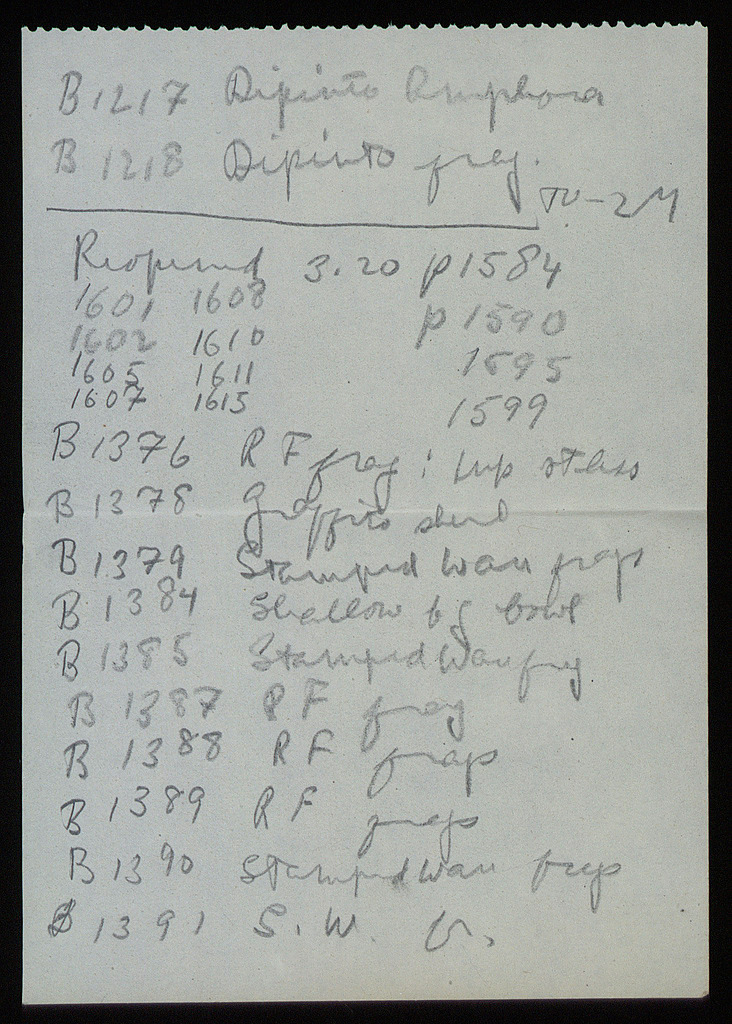 B 1217 Dipinto Amphora
B 1218 Dipinto frag.
Reopened 3.20 p1584
1601 1608 p 1590
1602 1610
1605 1611 1595
1607 1615 1599
B 1376 RF frag :
B 1378 graffito sherd
B 1379 Stamped Ware frags
B 1384 Shallow bg bowl
B 1385 Stamped Ware frg
B 1387 RF frag
B 1388 RF frags
B 1389 RF frags
B 1390 Stamped Ware frags
B 1391 S. W.